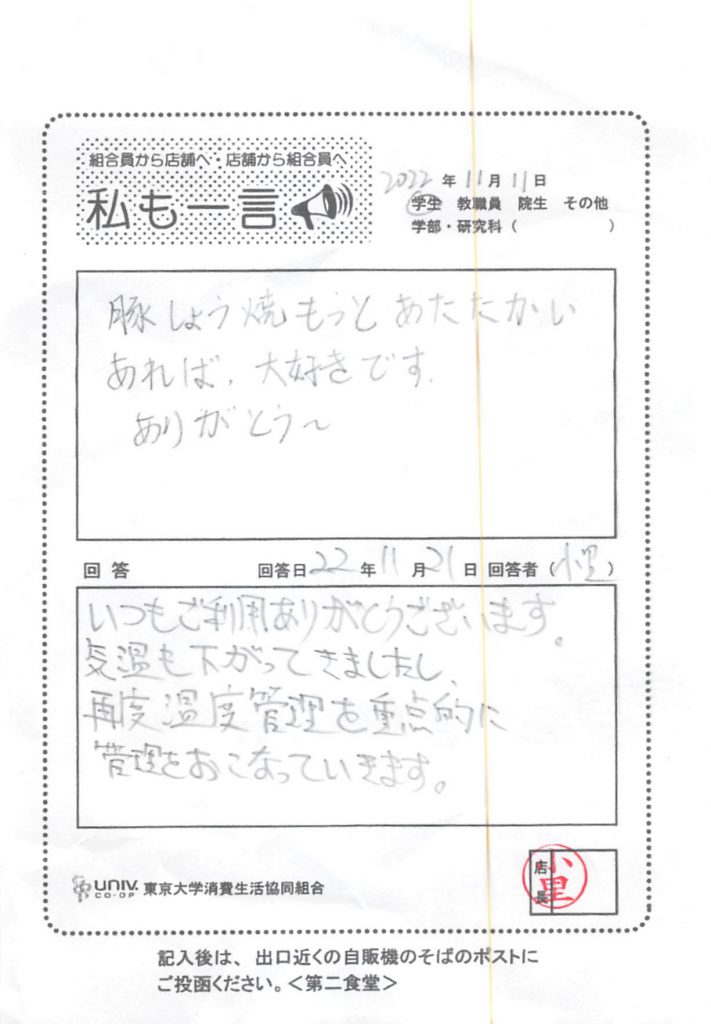 組合員から店舗へ・店舗から組合員へ
私も一言
2022年11月11日
学生 教職員 院生 その他
学部・研究科( )
豚しょう焼もっとあたたかい
あれば、大好きです.
ありがとう〜
回答 回答日22年11月21日 回答者(小里)
いつもご利用ありがとうございます。
気温も下がってきましたし、
再度温度管理を重点的に
管理をおこなっていきます。
UNIV. CO-OP 東京大学消費生活協同組合
店長 小里
記入後は、出口近くの自販機のそばのポストに
ご投函ください。<第二食堂>